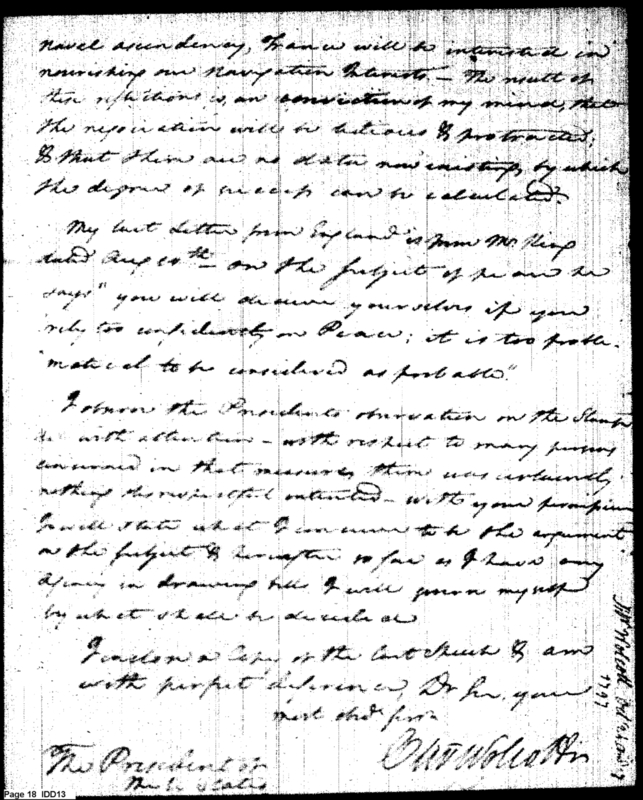 naval ascendency, France will be interested in
nourishing our Navigation Interests. – The result of
these reflections is, an conviction of my mind, that
the negociation will be tedious & protracted;
& that there are no data now existing, by which
the degree of success can be calculated.
My last Letter from England is from Mr. King
dated Aug 10th – on the subject of peace he
says "you will deceive yourselves if you
rely too confidently on Peace; it is too proble-
"matical to be considered as probable."
I observe the Presidents observation on the Stamp
with attention – with respect to many persons
concerned in that measure, there was certainly
nothing disrespectful intended – with your permission
I will state what I conceive to be the argument
on the subject & hereafter so far as I have any
Agency in drawing bills I will govern myself
by what shall be decided
I enclose a Copy of the last Speech & am
with perfect deference, Dr Sir, your
most obd. serv.
Oliv Wolcott Jr.
The President of
the U States
Mr Wolcott
1797
Page 18 IDD13